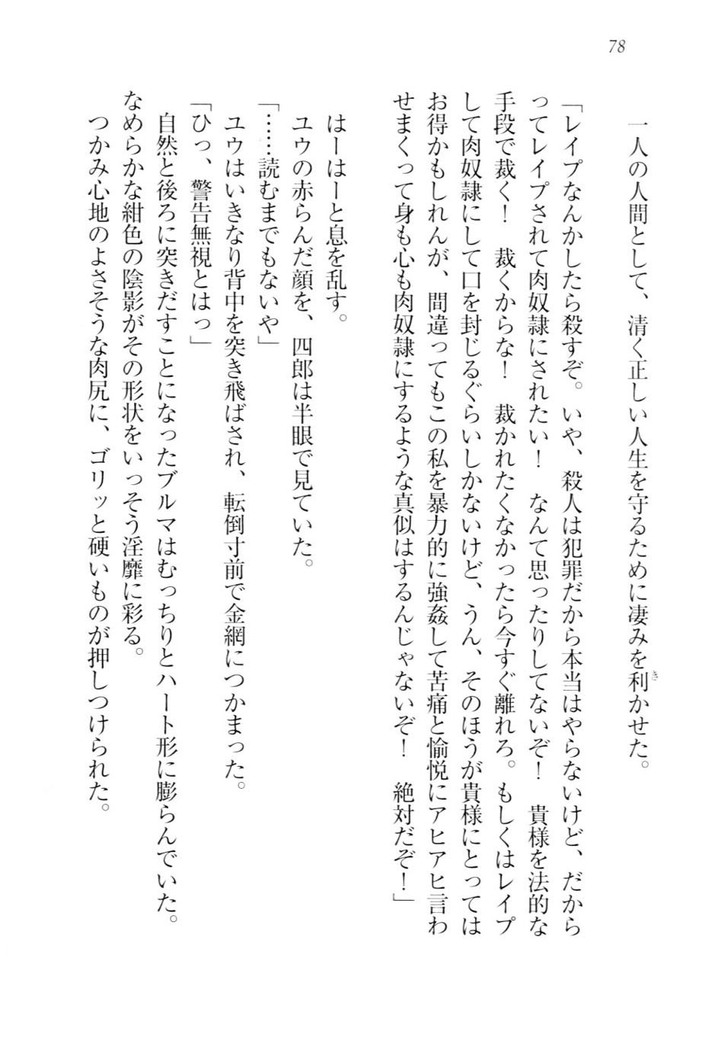 78
一人の人間として、清く正しい人生を守るために凄みを利かせた。
「レイプなんかしたら殺すぞ。いや、殺人は犯罪だから本当はやらないけど、だから
ってレイプされて肉奴隷にされたい！　なんて思ったりしてないぞ！　貴様を法的な
手段で裁く！　裁くからな！　裁かれたくなかったら今すぐ離れろ。もしくはレイプ
して肉奴隷にして口を封じるぐらいしかないけど、うん、そのほうが貴様にとっては
お得かもしれんが、間違ってもこの私を暴力的に強姦して苦痛と愉悦にアヒアヒ言わ
せまくって身も心も肉奴隷にするような真似はするんじゃないぞ！　絶対だぞ！」
はーはーと息を乱す。
ユウの赤らんだ顔を、四郎は半眼で見ていた。
「……読むまでもないや」
ユウはいきなり背中を突き飛ばされ、転倒寸前で金網につかまった。
「ひっ、警告無視とはっ」
自然と後ろに突きだすことになったブルマはむっちりとハート形に膨らんでいた。
なめらかな紺色の陰影がその形状をいっそう淫靡に彩る。
つかみ心地のよさそうな肉尻に、ゴリッと硬いものが押しつけられた。